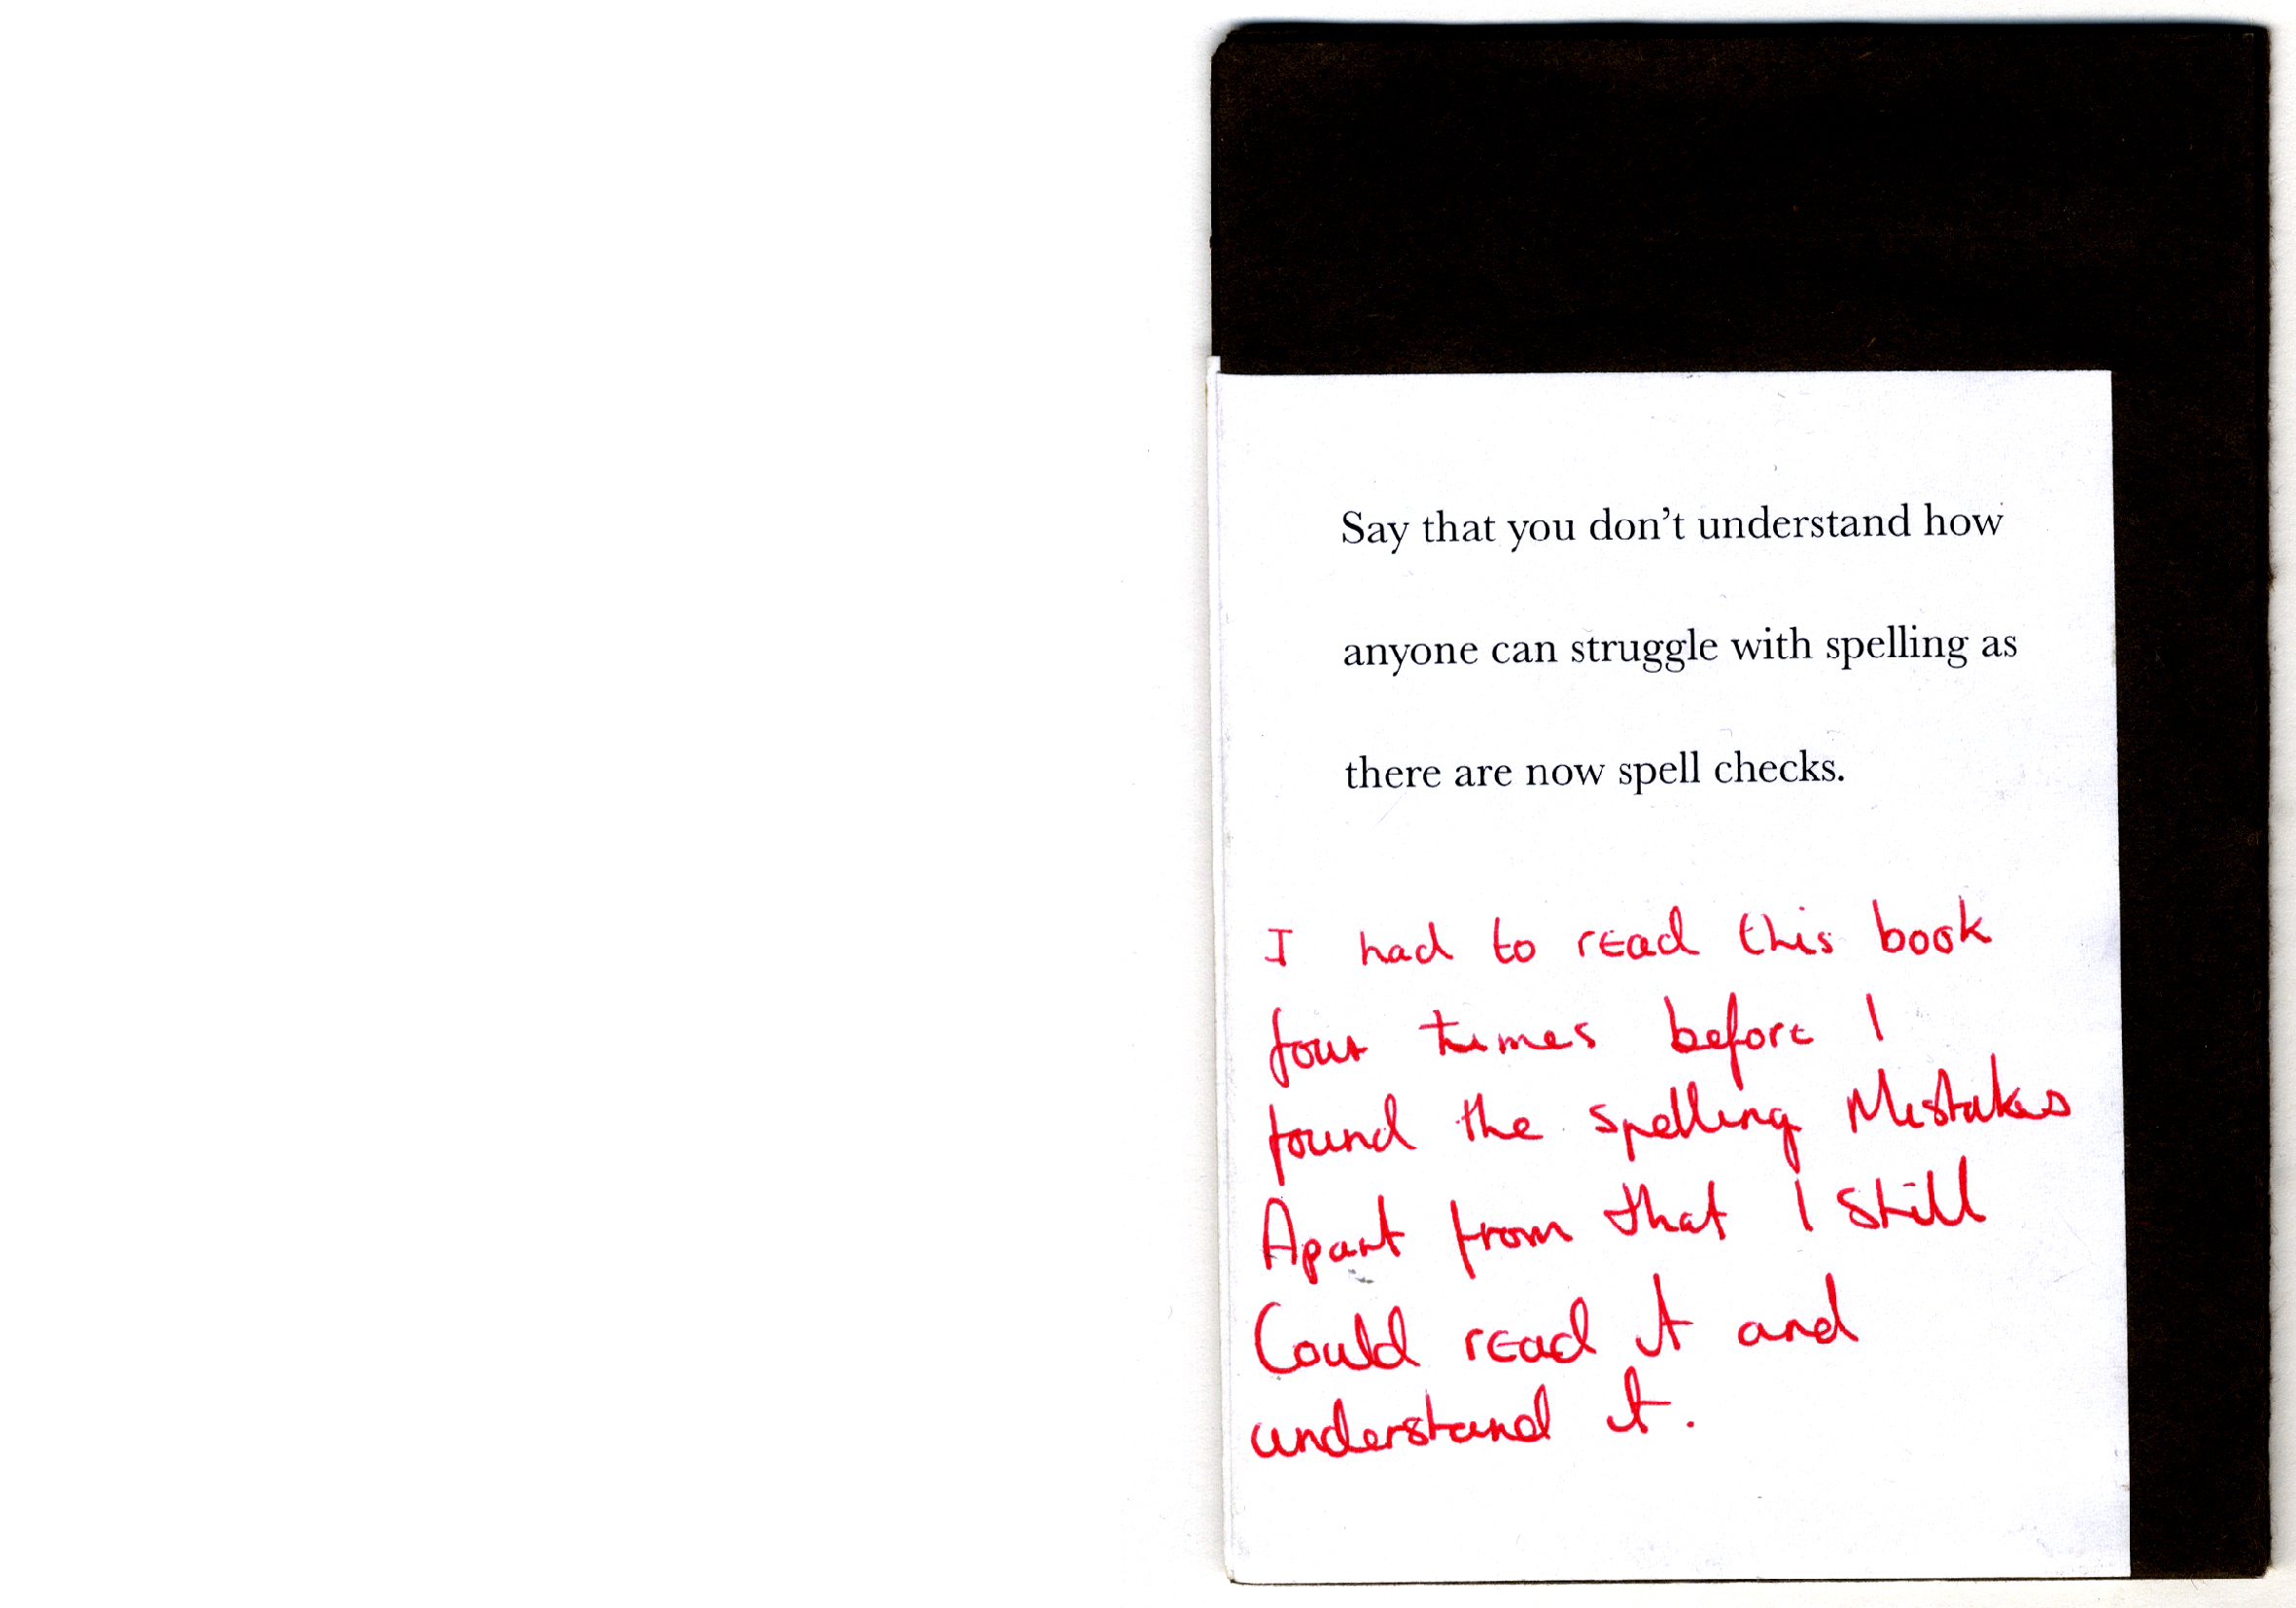 Say that you don't understand how
anyone can struggle with spelling as
there are now spell checks.
I had to read this book
four times before I
found the spelling Mistakes
Apart from that I still
Could read it and
understand it.